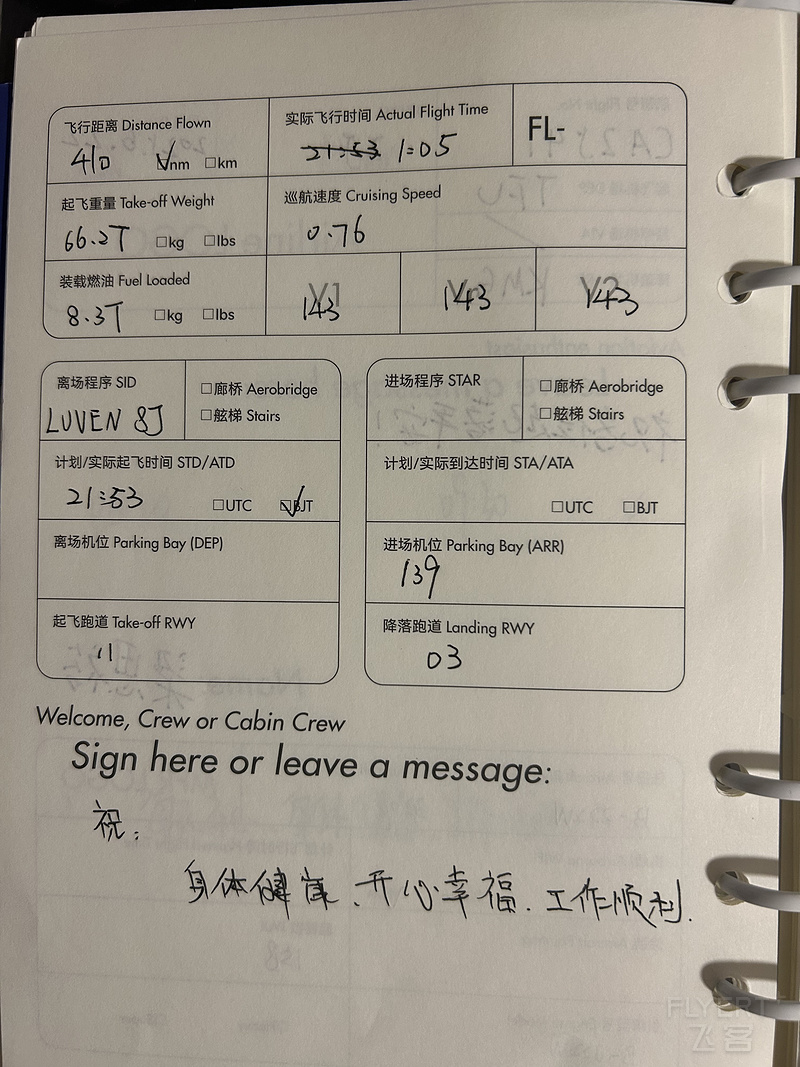 飞行距离 Distance Flown
410 ☑nm □km
实际飞行时间 Actual Flight Time
21:53 1:05
FL-
起飞重量 Take-off Weight
66.2T □kg □lbs
巡航速度 Cruising Speed
0.76
装载燃油 Fuel Loaded
8.3T □kg □lbs
V1
143
143
V2
143
离场程序 SID
LUVEN 8J
□廊桥 Aerobridge
□舷梯 Stairs
计划/实际起飞时间 STD/ATD
21:53 □UTC ☑BJT
离场机位 Parking Bay (DEP)
起飞跑道 Take-off RWY
11
进场程序 STAR
□廊桥 Aerobridge
□舷梯 Stairs
计划/实际到达时间 STA/ATA
□UTC □BJT
进场机位 Parking Bay (ARR)
139
降落跑道 Landing RWY
03
Welcome, Crew or Cabin Crew
Sign here or leave a message:
祝:
身体健康、开心幸福. 工作顺利.
FLYERT
飞客